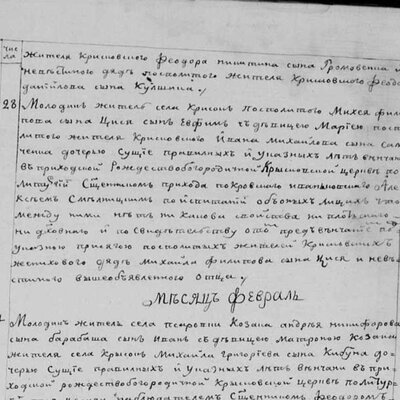 числа
жителя Крисковского Феодора никитина сына Громовенка и
невѣстиного дядѣ посполитого жителя Крисковского Феодо
даніилова сына Кулшика
28 Молодикъ житель села Крисокъ посполитого Михея фили
пова сына Циси сынъ Евфимъ съ дѣвицею Маріею поспо
литого жителя Крисковского Ивана Михаилова сына
ченка дочерью Сущіе правилныхъ и указныхъ лѣтъ вѣнчани
въ приходской Рождествобогородичной Крисковской церквѣ по
литургіи Сщенникомъ прихода покровского Але
ѯѣемъ по испитаніи обоихъ лицъ что
между ними нѣтъ ни какова свойства ни плотского
ни дховнаго и по свидѣтельству о томъ предъ вѣнчаніемъ по
указною присягою посполитыхъ жителей Крисковскихъ
жениховаго дядѣ Михаила филипова сына Циси и невѣ
стиного вышеобъявленного отца
Мѣсяцъ февраль
Молодикъ житель села псаровки Козака андрѣя никифорова
сына барабаша сынъ Иванъ съ дѣвицею Матроною Козака
жителя села Крисокъ Михаила григоріева сына до
черью Сущіе правилныхъ и указныхъ лѣтъ вѣнчани въ при
ходской рождествобогородичной Крисковской церквѣ по литур
Сщенникомъ Феодоромъ